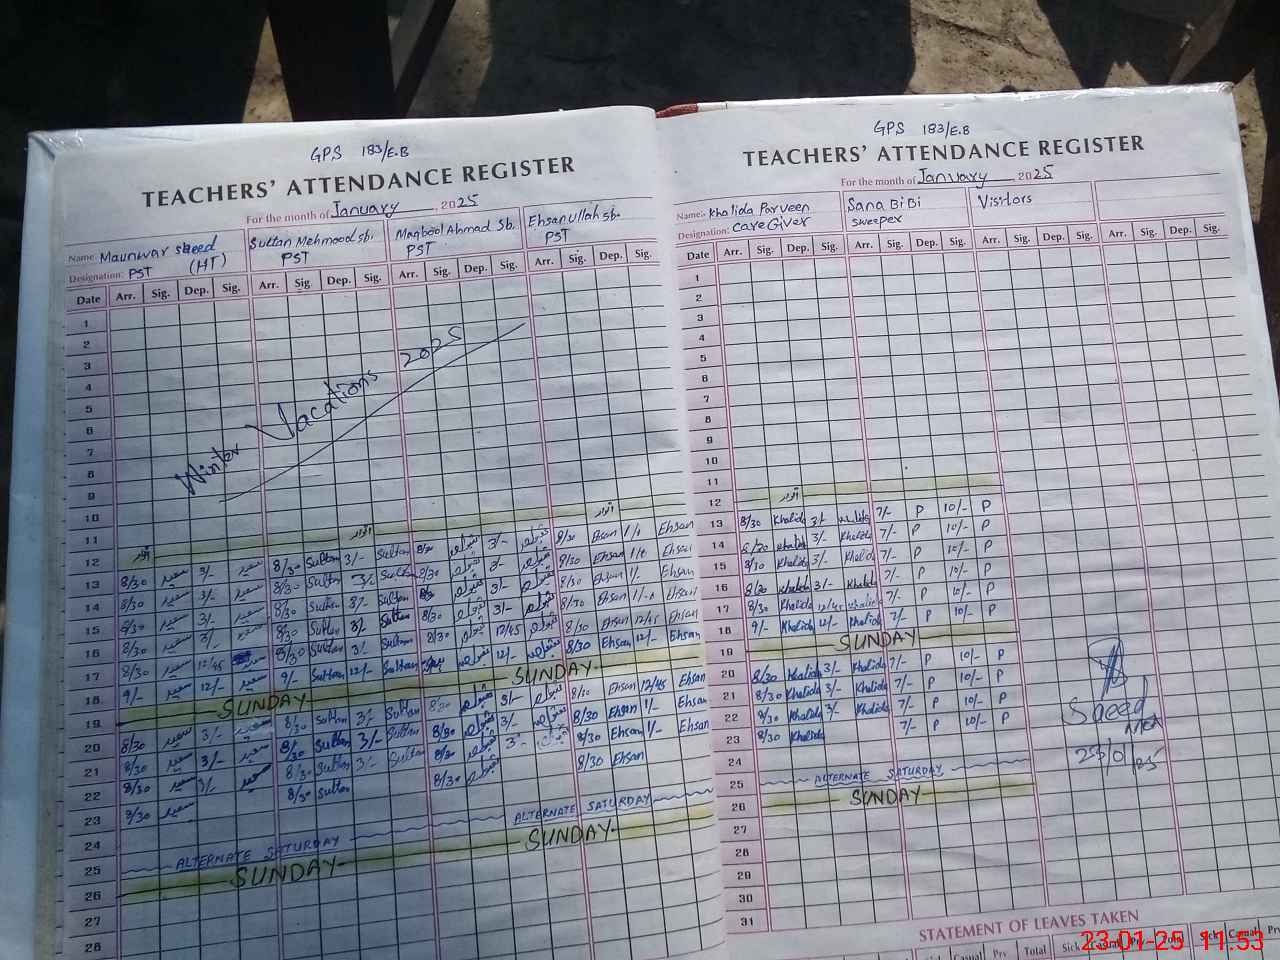 GPS 183/E.B
TEACHERS' ATTENDANCE REGISTER
For the month of January, 2025
Name Maunwar Saeed Sultan Mehmood Sb. Maqbool Ahmad Sb. Ehsanullah Sb.
Designation: PST (HT) PST PST PST
Date Arr. Sig. Dep. Sig. Arr. Sig. Dep. Sig. Arr. Sig. Dep. Sig. Arr. Sig. Dep. Sig.
1
2
3
4
5
6
7
8
9
10
11
12
Winter Vacations 2025
اتوار اتوار اتوار
13 8/30 سعید 3/- سعید 8/30 Sultan 3/- Sultan 8/30 3/- 8/30 Ehsan 1/- Ehsan
14 8/30 سعید 3/- سعید 8/30 Sultan 3/- Sultan 8/30 3/- 8/30 Ehsan Ehsan
15 8/30 سعید 3/- سعید 8/30 Sultan 3/- Sultan 3/- 8/30 Ehsan 1/- Ehsan
16 8/30 سعید 3/- سعید 8/30 Sultan 3/- Sultan 8/30 3/- 8/30 Ehsan Ehsan
17 8/30 سعید 12/45 سعید 8/30 Sultan 3/- Sultan 8/30 12/45 8/30 Ehsan 12/45 Ehsan
18 9/- سعید 12/- سعید 9/- Sultan 12/- Sultan 12/- 8/30 Ehsan 12/- Ehsan
19 SUNDAY SUNDAY
20 8/30 سعید 3/- سعید 8/30 Sultan 3/- Sultan 8/30 3/- 8/30 Ehsan 12/45 Ehsan
21 8/30 سعید 3/- سعید 8/30 Sultan 3/- Sultan 8/30 3/- 8/30 Ehsan 1/- Ehsan
22 8/30 سعید 3/- سعید 8/30 Sultan 3/- Sultan 8/30 3/- 8/30 Ehsan 1/- Ehsan
23 8/30 سعید 8/30 Sultan 8/30 8/30 Ehsan
24
25 ALTERNATE SATURDAY ALTERNATE SATURDAY
26 SUNDAY SUNDAY
27
28
GPS 183/E.B
TEACHERS' ATTENDANCE REGISTER
For the month of January 2025
Name:- Khalida Parveen Sana BiBi Visitors
Designation: Care Giver Sweeper
Date Arr. Sig. Dep. Sig. Arr. Sig. Dep. Sig. Arr. Sig. Dep. Sig. Arr. Sig. Dep. Sig.
1
2
3
4
5
6
7
8
9
10
11
12 اتوار
13 8/30 Khalida 3/- Khalida 7/- P 10/- P
14 8/30 Khalida 3/- Khalida 7/- P 10/- P
15 8/30 Khalida 3/- Khalida 7/- P 10/- P
16 8/30 Khalida 3/- Khalida 7/- P 10/- P
17 8/30 Khalida 12/45 Khalida 7/- P 10/- P
18 9/- Khalida 12/- Khalida 7/- P 10/- P
19 SUNDAY
20 8/30 Khalida 3/- Khalida 7/- P 10/- P
21 8/30 Khalida 3/- Khalida 7/- P 10/- P
22 8/30 Khalida 3/- Khalida 7/- P 10/- P
23 8/30 Khalida 7/- P 10/- P
24
25 ALTERNATE SATURDAY
26 SUNDAY
27
28
29
30
31
Saeed
23/01/25
STATEMENT OF LEAVES TAKEN
Sick Casual Prv Total Sick Casual Prv Total Sick Casual
23-01-25 11:53